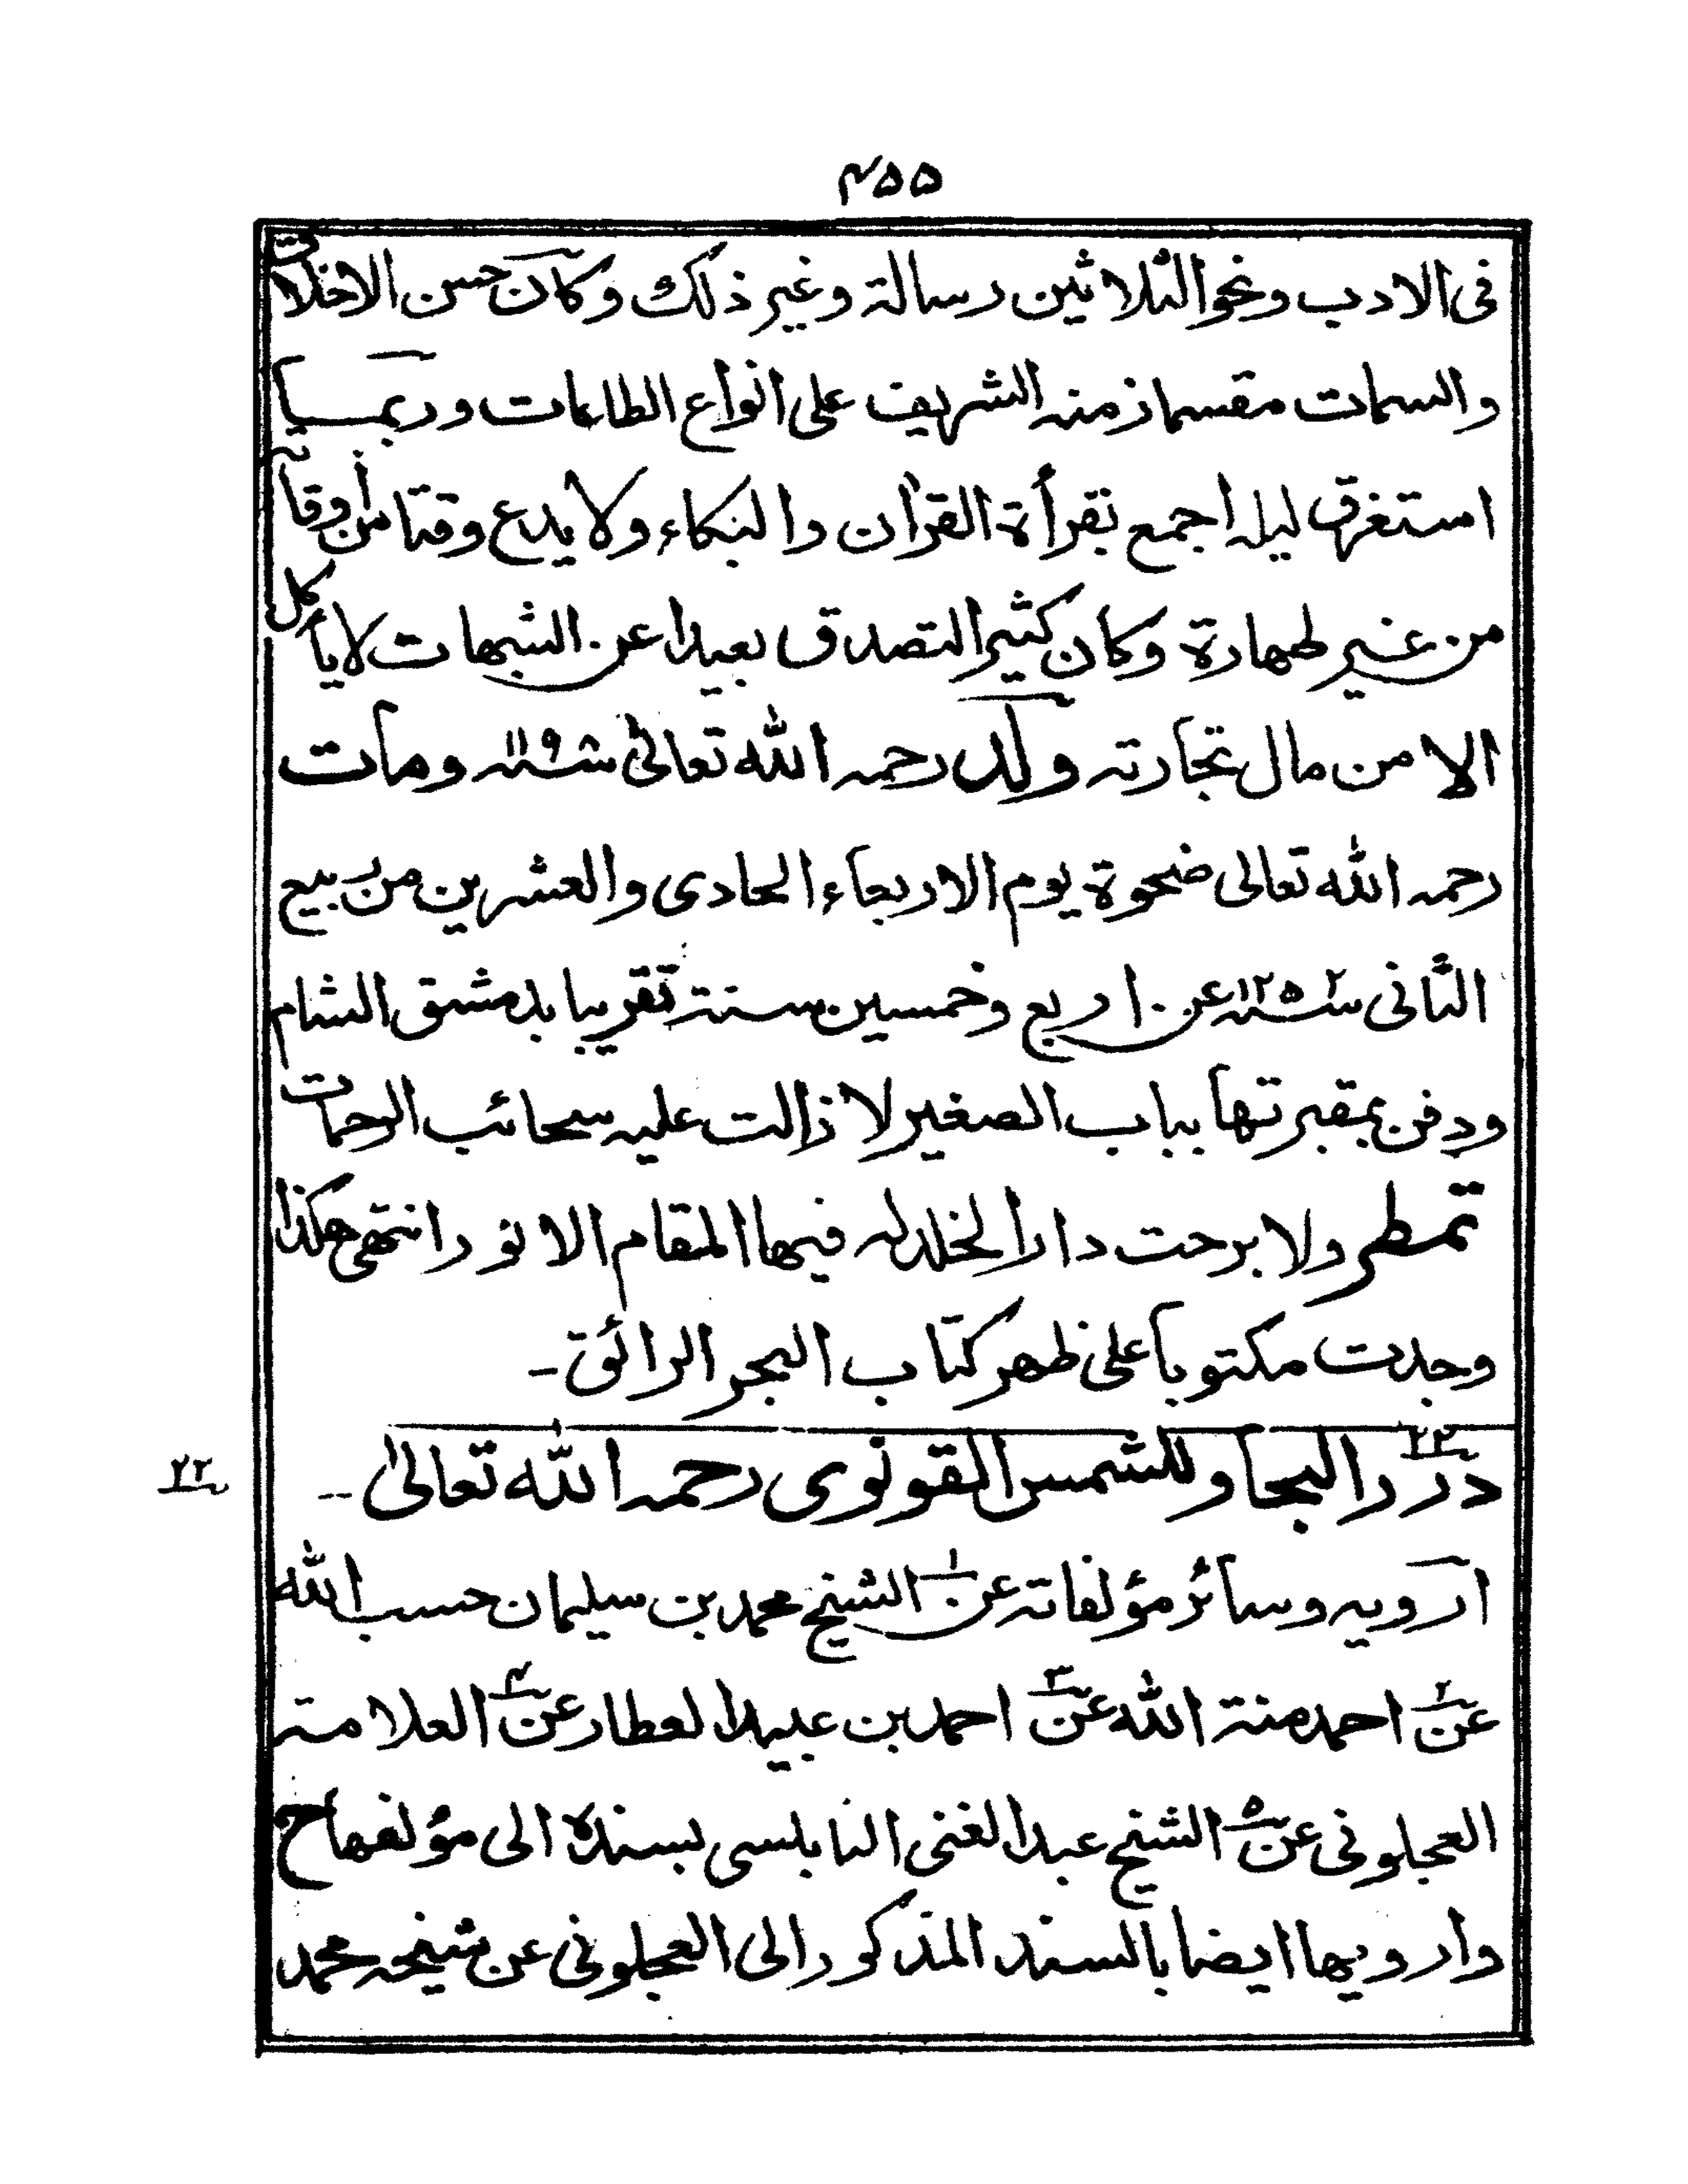 ٤٥٥
فى الادب ونحو الثلاثين رسالة وغير ذلك وكان حسن الاخلاق
والسمات مقسما زمنه الشريف على انواع الطاعات وربمـــا
استغرق ليله اجمع بقرأة القرآن والبكاء ولا يدع وقتا من أوقاته
من غير طهارة وكان كثير التصدق بعيدا عن الشبهات لا يأكل
الا من مال تجارته ولد رحمه الله تعالى سنة ١١٩٨ ومات
رحمه الله تعالى ضحوة يوم الاربعاء الحادى والعشرين من ربيع
الثانى سنة ١٢٥٢ عن اربع وخمسين سنة تقريبا بدمشق الشام
ودفن بمقبرتها بباب الصغير لا زالت عليه سحائب الرحمات
تمطر ولا برحت دار الخلد له فيها المقام الانور انتهى هكذا
وجدت مكتوبا على ظهر كتاب البحر الرائق ـ
٢٢
درر البحار وللشمس القونوى رحمه الله تعالى ــ
ارويه وسائر مؤلفاته عن١ الشيخ محمد بن سليمان حسب الله
عن٢ احمد منة الله عن٣ احمد بن عبيد العطار عن٤ العلامة
العجلونى عن٥ الشيخ عبد الغنى النابلسى بسنده الى مؤلفها ح
وارويها ايضا بالسند المذكور الى العجلونى عن شيخه محمد